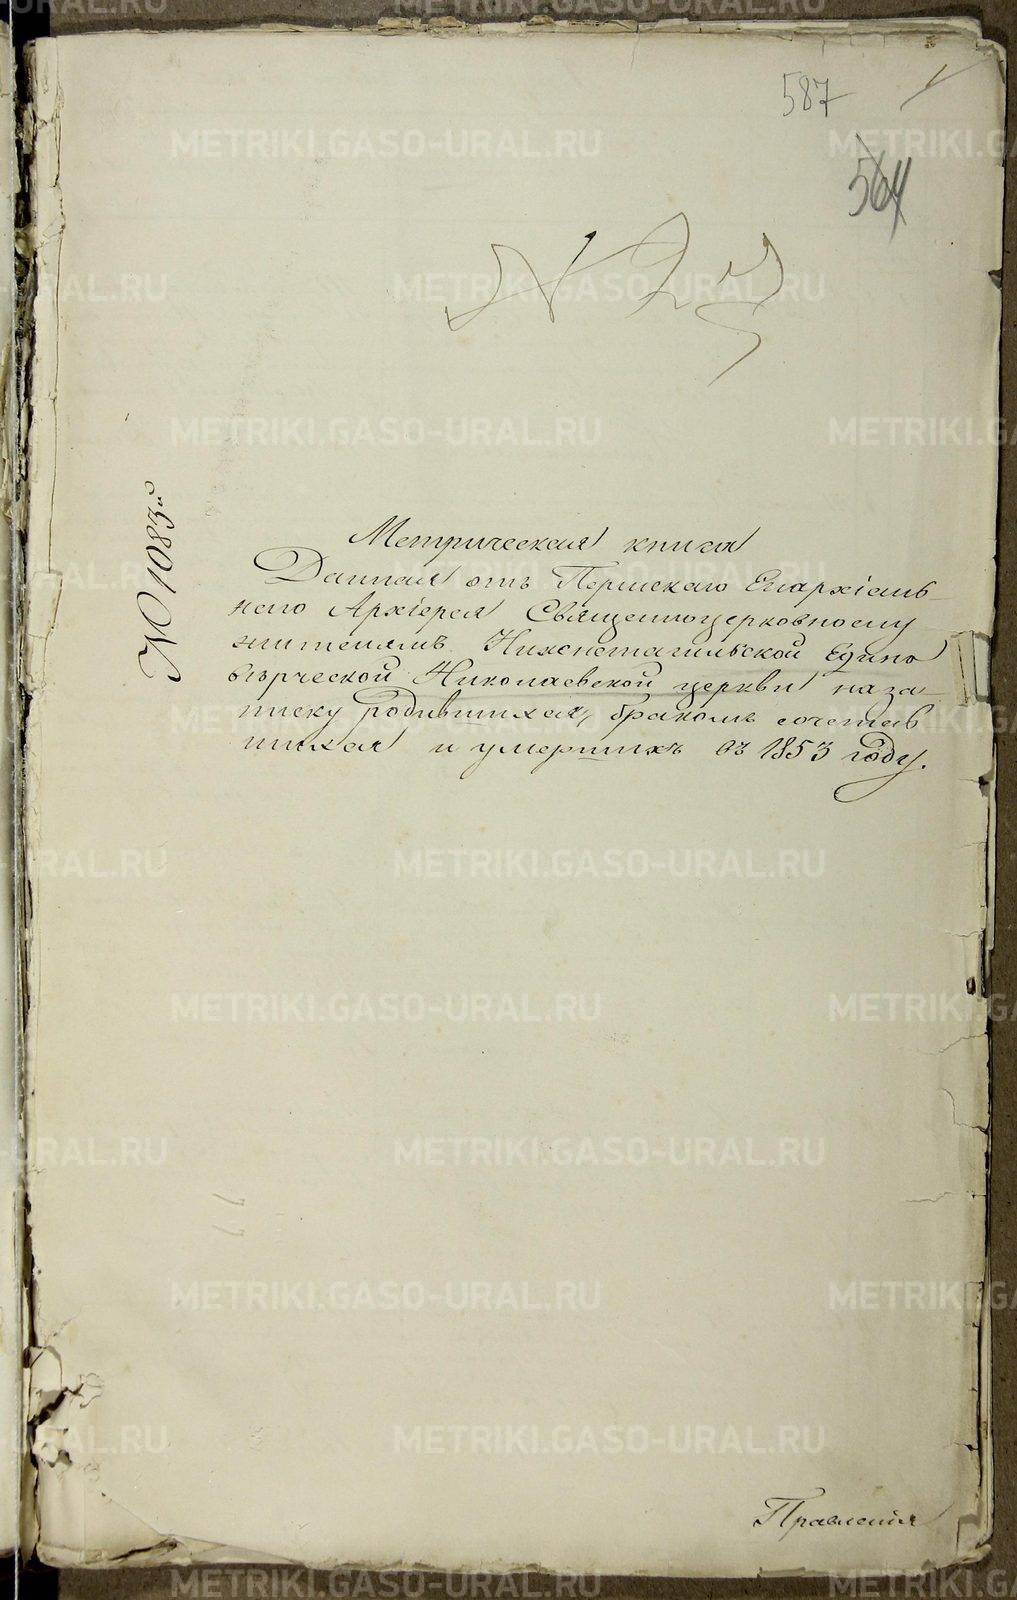 587
564
№ 1083й
Метрическая книга
Данная отъ Пермскаго Епархіаль
наго Архіерея Священноцерковнослу
жителямъ Нижнетагильской Едино
вѣрческой Николаевской церкви на за
писку родившихся, бракомъ сочетав
шихся и умершихъ въ 1853 году.
Правленія
METRIKI.GASO-URAL.RU